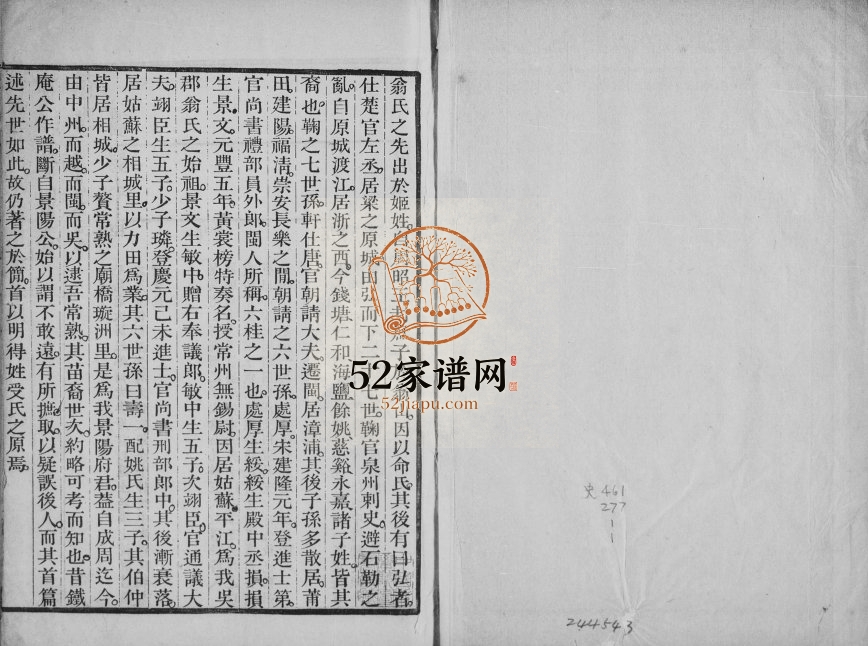 翁氏之先出於姬姓自周昭王封庶子於翁因以命氏其後有曰弘者
仕楚官左丞居梁之原城由弘而下二十七世鞠官泉州刺史避石勒之
亂自原城渡江居浙之西今錢塘仁和海鹽餘姚慈谿永嘉諸子姓皆其
裔也鞠之七世孫軒仕唐官朝請大夫遷閩居漳浦其後子孫多散居莆
田建陽福清崇安長樂之間朝請之六世孫處厚宋建隆元年登進士第
官尚書禮部員外郎閩人所稱六桂之一也處厚生綏綏生殿中丞損損
生景文元豐五年黃裳榜特奏名授常州無錫尉因居姑蘇平江為我吳
郡翁氏之始祖景文生敏中贈右奉議郎敏中生五子次翊臣官通議大
夫翊臣生五子少子璘登慶元己未進士官尚書刑部郎中其後漸衰落
居姑蘇之相城里以力田為業其六世孫曰壽一配姚氏生三子其伯仲
皆居相城少子贅常熟之廟橋璇洲里是為我景陽府君蓋自成周迄今
由中州而越而閩而吳以逮吾常熟其苗裔世次約略可考而知也昔鐵
庵公作譜斷自景陽公始以謂不敢遠有所摭取以疑誤後人而其首篇
述先世如此故仍著之於簡首以明得姓受氏之原焉
52家谱网
52jiapu.com
史 461
277
1
1
244543